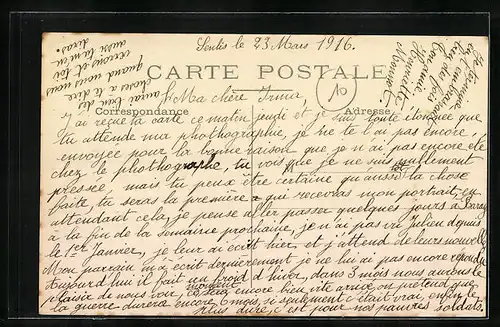 Senlis le 23 Mars 1916.
CARTE POSTALE
Ma chère Irma,
Correspondance
Adresse
J'ai reçue ta carte ce matin jeudi et je suis toute étonnée que
tu attende ma photographie, je ne te l'ai pas encore
envoyée pour la bonne raison que je n'ai pas encore été
chez le photographe, tu vois que je ne suis nullement
pressée, mais tu peux être certaine qu'aussitôt la chose
faite tu seras la première qui recevras mon portrait, en
attendant cela, je pense aller passer quelques jours à
à la fin de la semaine prochaine, je n'ai pas vu Julien depuis
le 1er Janvier, je leur ai écrit hier, et j'attend de leurs nouvelles
Mon parrain m'a écrit dernièrement je ne lui ai pas encore répondu
aujourd'hui il fait un froid d'hiver, dans 3 mois nous aurons le
plaisir de nous voir, ce moment sera encore bien vite arrivé, on prétend que
la guerre durera encore 6 mois, si seulement c'était vrai, enfin le
plus dure, c'est pour nos pauvres soldats.
aurai bien des
choses à te dire
quand nous nous
verrons et toi
aussi tu m'en
diras.